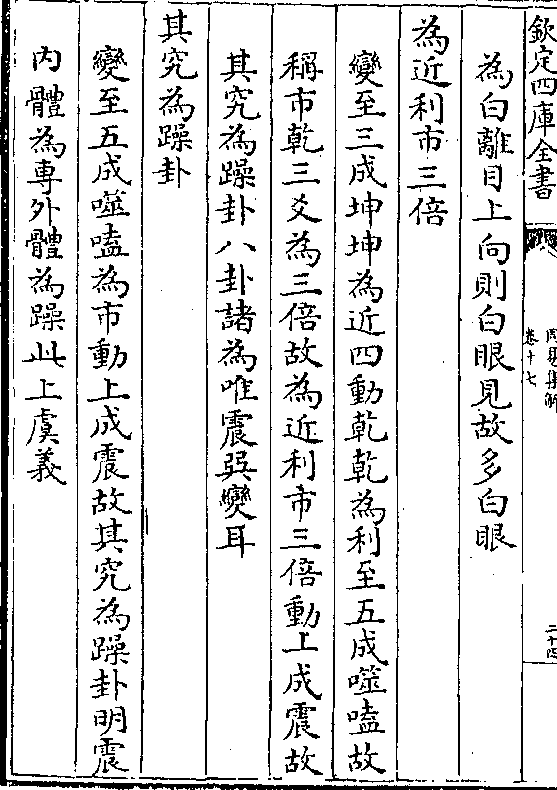 欽定四庫全書
周易集解
卷十七
二十四
為白離目上向則白眼見故多白眼
為近利市三倍
變至三成坤坤為近四動乾乾為利至五成噬嗑故
稱市乾三爻為三倍故為近利市三倍動上成震故
其究為躁卦八卦諸為唯震巽變耳
其究為躁卦
變至五成噬嗑為市動上成震故其究為躁卦明震
內體為專外體為躁此上虞義